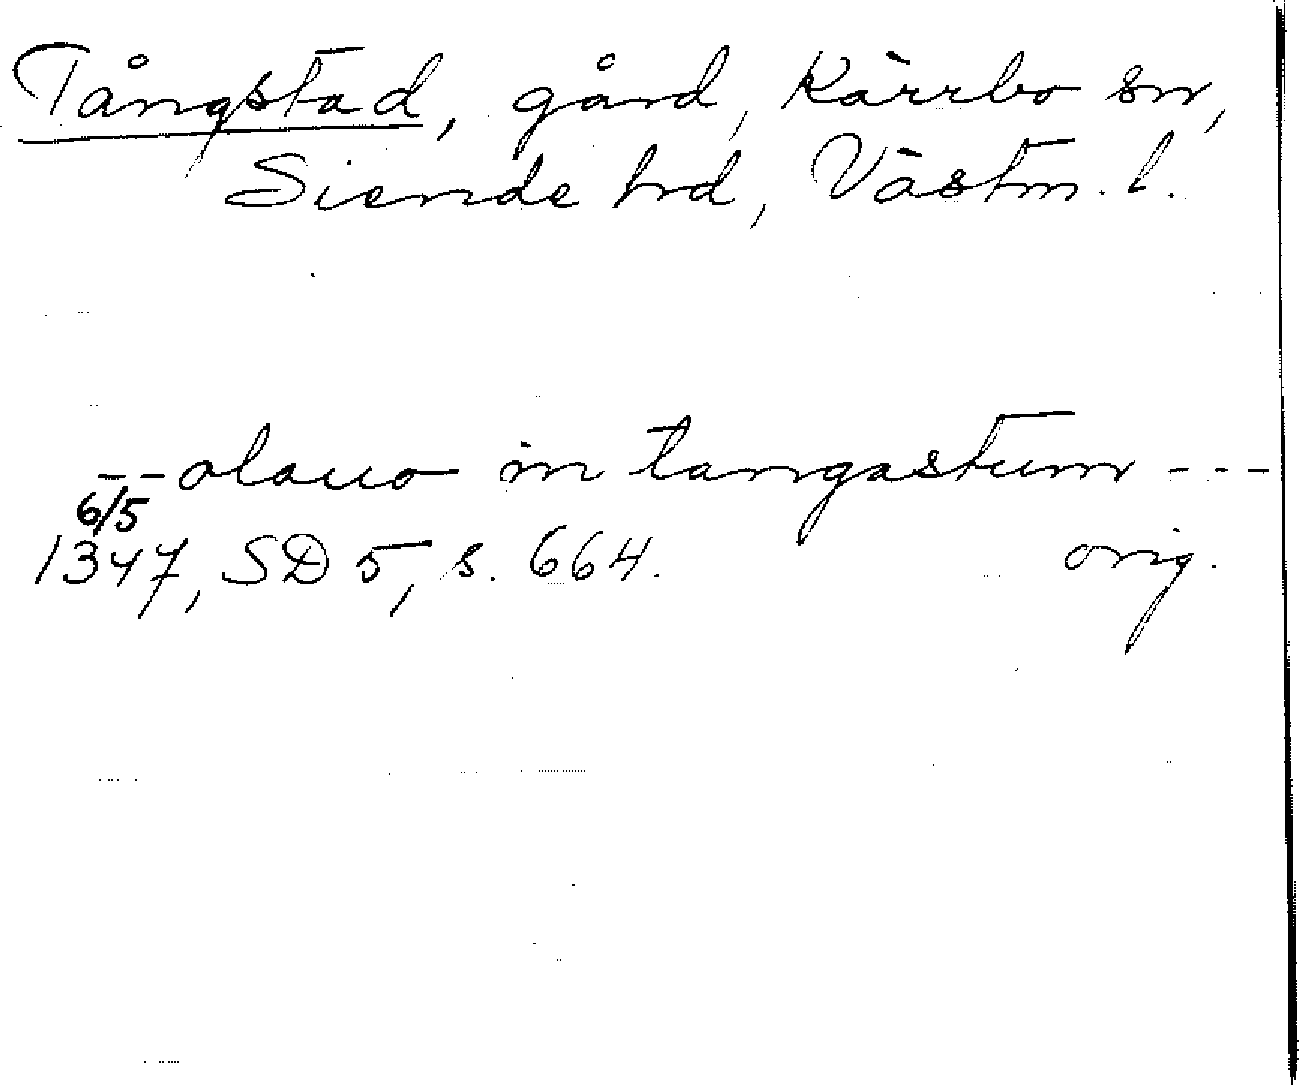 Tångstad, gård, Kärrbo sn,
Siende hd, Västm. l.
-- olauo in tangastum ---
6/5
1347, SD 5, s. 664. orig.